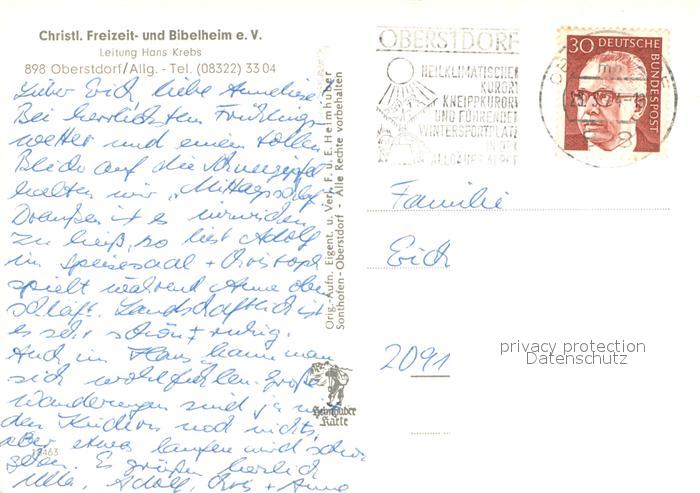 Christl. Freizeit- und Bibelheim e. V.
Leitung Hans Krebs
898 Oberstdorf/Allg. - Tel. (08322) 33 04
Lieber Erich, liebe Anneliese!
Bei herrlichstem Frühlings-
wetter und einem tollen
Blick auf die Schneegipfel
halten wir „Mittagsschlaf"
Draußen ist es
zu heiß, so liest Adolf
im Speisesaal + Christoph
spielt während Anne oben
schläft. Landschaftlich ist
es sehr schön + ruhig.
Auch im Haus kann man
sich wohlfühlen. Große
Wanderungen sind ja mit
den Kindern noch nichts,
aber etwas laufen wird schon
gehen. Es grüßen herzlich
Ulla, Adolf, Chris + Anne
12463
Orig.-Aufn. Eigent. u. Verl. F. u. E. Heimhuber
Sonthofen-Oberstdorf - Alle Rechte vorbehalten
Heimhuber
Karte
OBERSTDORF
HEILKLIMATISCHER
KURORT
KNEIPPKURORT
UND FÜHRENDER
WINTERSPORTPLATZ
IN DEN
ALLGÄUER ALPEN
30 DEUTSCHE
BUNDESPOST
Familie
Erich
2091
privacy protection
Datenschutz